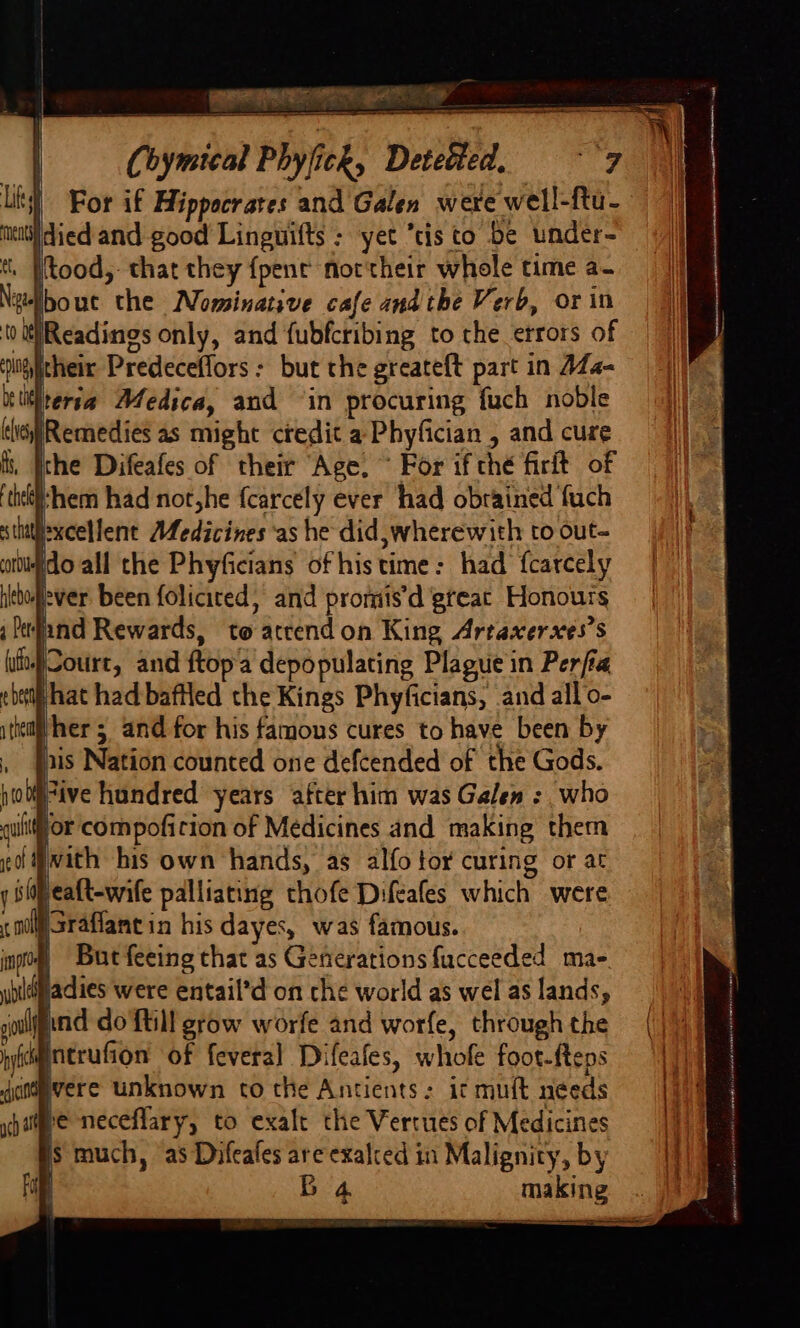 Chymical Phyſick, Detected. 7
For if Hippocrates and Galen were well-ſtu-
died and good Linguiſts : yet 'tis to be under-
ſtood, that they ſpent not their whole time a-
bout the Nominative caſe and the Verb, or in
Readings only, and ſubſcribing to the errors of
their Predeceſſors : but the greateſt part in Ma-
teria Medica, and in procuring ſuch noble
Remedies as might credit a Phyſician , and cure
the Diſeaſes of their Age. For if the firſt of
them had not, he ſcarcely ever had obtained ſuch
excellent Medicines as he did, wherewith to out-
do all the Phyſicians of his time : had ſcarcely
ever been ſolicited, and promis'd great Honours
and Rewards, to attend on King Artaxerxes's
Court, and ſtop a depopulating Plague in Perſia
that had baffled the Kings Phyſicians, and all o-
ther ; and for his famous cures to have been by
his Nation counted one deſcended of the Gods.
Five hundred years after him was Galen : who
for compoſition of Medicines and making them
with his own hands, as alſo for curing or at
leaſt-wiſe palliating thoſe Diſeaſes which were
Graſſant in his dayes, was famous.
But ſeeing that as Generations ſucceeded ma-
ladies were entail'd on the world as wel as lands,
and do ſtill grow worſe and worſe, through the
intruſion of ſeveral Diſeaſes, whoſe foot-ſteps
were unknown to the Antients : it muſt needs
be neceſſary, to exalt the Vertues of Medicines
as much, as Diſeaſes are exalted in Malignity, by
B 4 making